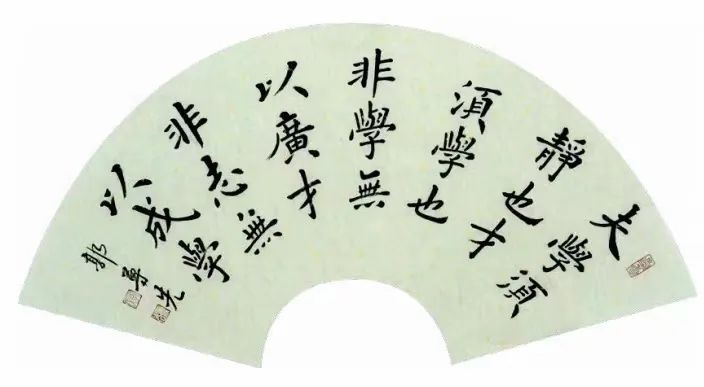 夫學須
靜也才
湏學也
非學無
以廣才
非志無
以成學
郭 先